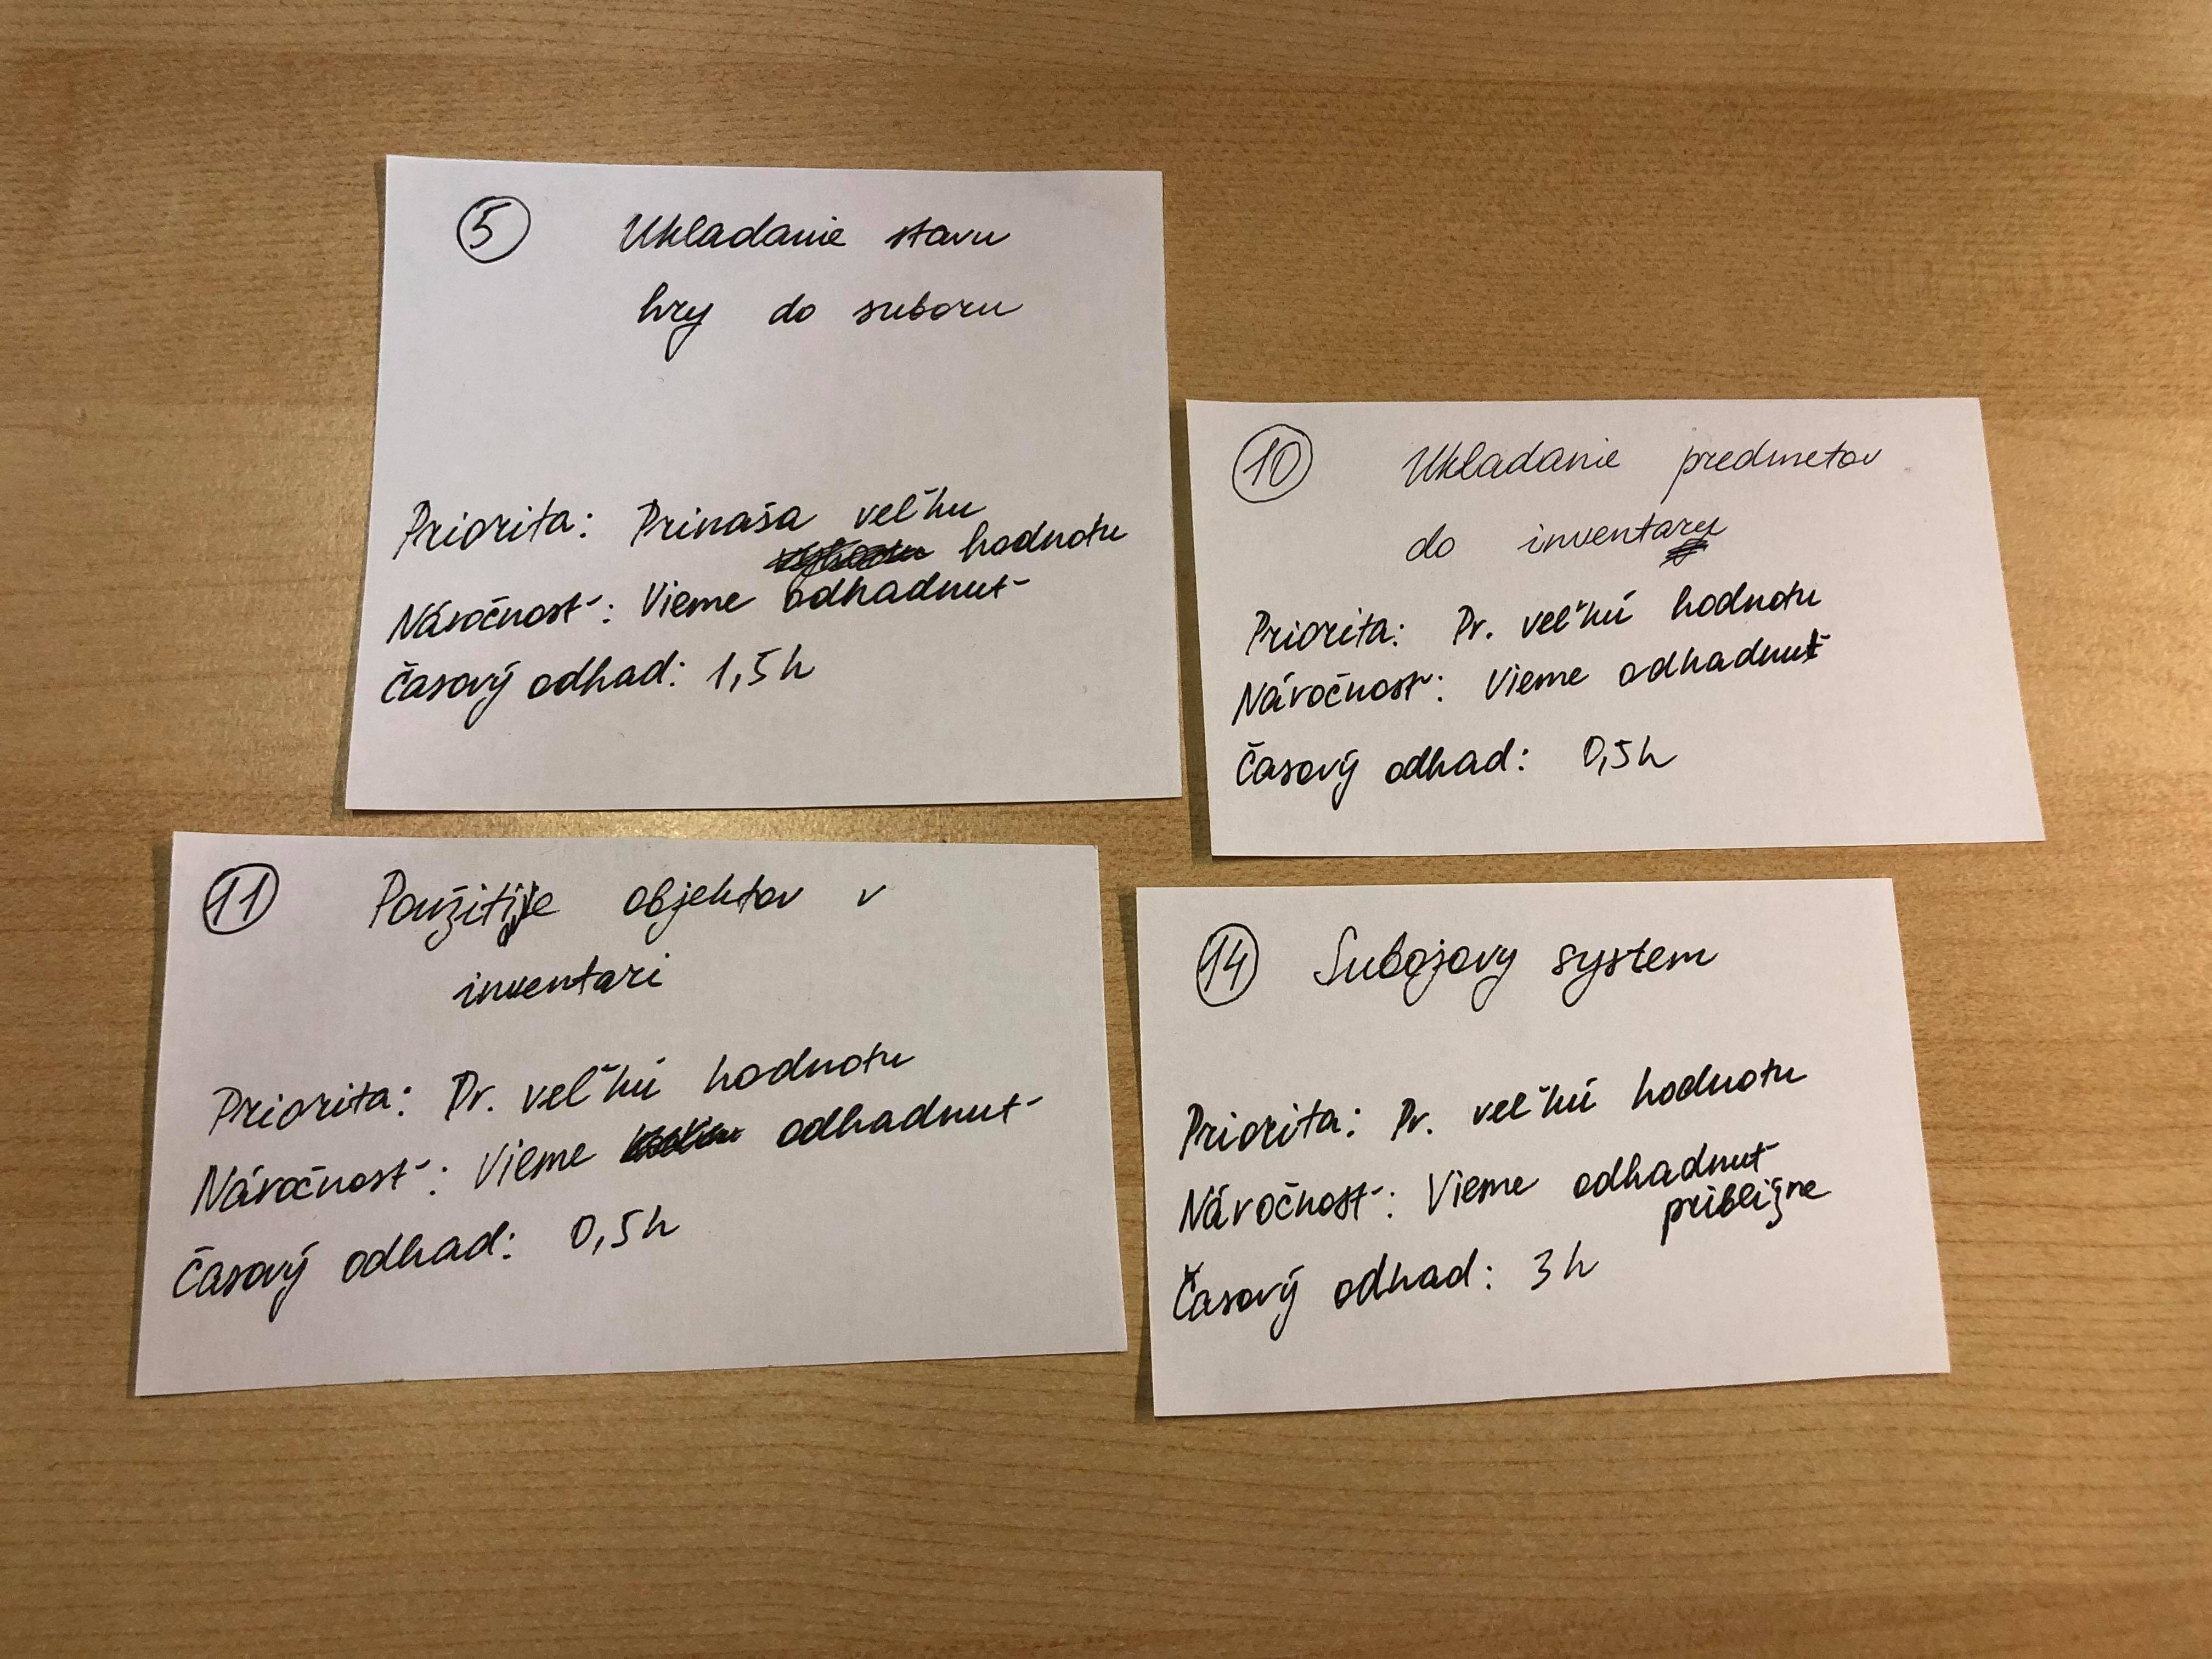 5 Ukladanie stavu
hry do suboru
Priorita: Prinaša veľku
hodnotu
Náročnosť: Vieme odhadnuť
Časový odhad: 1,5h
10 Ukladanie predmetov
do inventary
Priorita: Pr. veľkú hodnotu
Náročnosť: Vieme odhadnuť
Časový odhad: 0,5h
11 Použitije objektov v
inventari
Priorita: Pr. veľkú hodnotu
Náročnosť: Vieme odhadnuť
Časový odhad: 0,5h
14 Subojovy system
Priorita: Pr. veľkú hodnotu
Náročnosť: Vieme odhadnuť
približne
Časový odhad: 3h